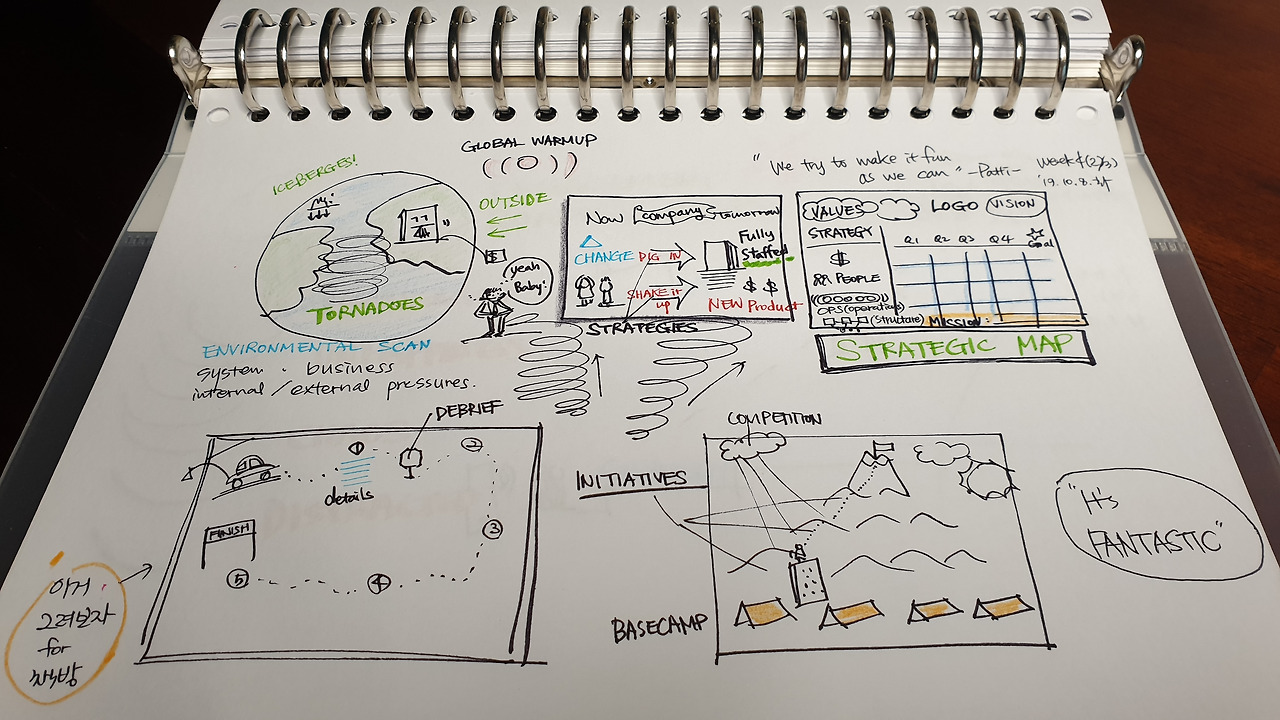 GLOBAL WARMUP
ICEBERGES!
OUTSIDE
TORNADOES
$
yeah
Baby!
ENVIRONMENTAL SCAN
system · business
internal / external pressures.
Now company tomorrow
CHANGE
DIG IN
SHAKE it
up
Fully
Staffed
$ $
NEW Product
STRATEGIES
"We try to make it fun
as we can" -Patti-
week4 (2/5)
'19.10.8.
VALUES
LOGO
VISION
STRATEGY
Q1 Q2 Q3 Q4
Goal
$
PEOPLE
OPS(operations)
(Structure)
MISSION:
STRATEGIC MAP
DEBRIEF
①
②
details
③
FINISH
⑤
④
이거
그려보자
for
COMPETITION
INITIATIVES
BASECAMP
"It's
FANTASTIC"